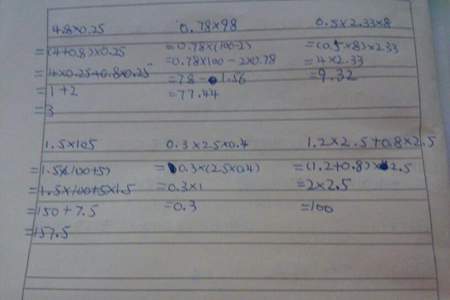 4.8×0.25
=(4+0.8)×0.25
=4×0.25+0.8×0.25
=1+2
=3
0.78×98
=0.78×(100-2)
=0.78×100-2×0.78
=78-1.56
=77.44
0.5×2.33×8
=(0.5×8)×2.33
=4×2.33
=9.32
1.5×105
=1.5×(100+5)
=1.5×100+5×1.5
=150+7.5
=157.5
0.3×2.5×0.4
=0.3×(2.5×0.4)
=0.3×1
=0.3
1.2×2.5+0.8×2.5
=(1.2+0.8)×2.5
=2×2.5
=100